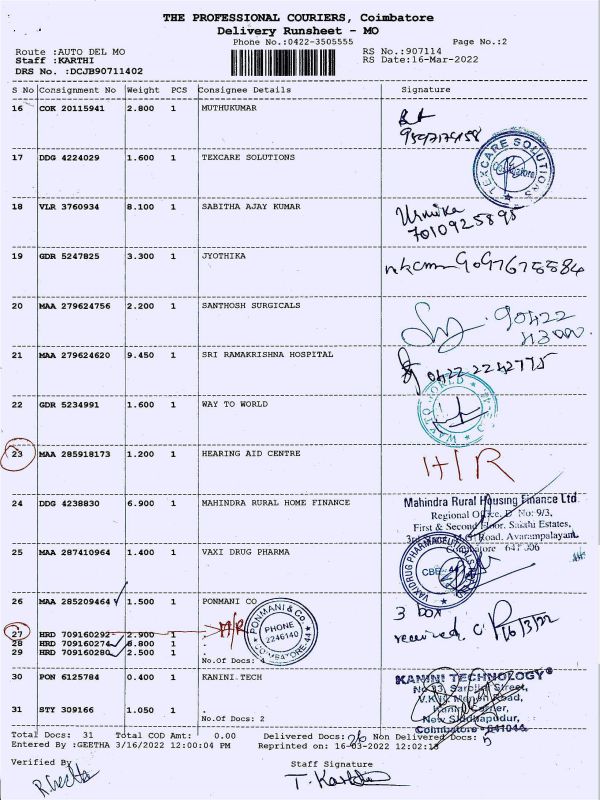 THE PROFESSIONAL COURIERS, Coimbatore
Delivery Runsheet - MO
Phone No.:0422-3505555 Page No.:2
Route :AUTO DEL MO RS No.:907114
Staff :KARTHI RS Date:16-Mar-2022
DRS No. :DCJB90711402
S No Consignment No Weight PCS Consignee Details Signature
16 COK 20115941 2.800 1 MUTHUKUMAR
17 DDG 4224029 1.600 1 TEXCARE SOLUTIONS
TEXCARE SOLUTIONS
Coimbatore
18 VLR 3760934 8.100 1 SABITHA AJAY KUMAR
Urmika
7010925895
19 GDR 5247825 3.300 1 JYOTHIKA
20 MAA 279624756 2.200 1 SANTHOSH SURGICALS
90422
21 MAA 279624620 9.450 1 SRI RAMAKRISHNA HOSPITAL
0422 2242775
22 GDR 5234991 1.600 1 WAY TO WORLD
WAY TO WORLD
23 MAA 285918173 1.200 1 HEARING AID CENTRE
H/R
24 DDG 4238830 6.900 1 MAHINDRA RURAL HOME FINANCE
Mahindra Rural Housing Finance Ltd
Regional Office, D No: 9/3,
First & Second Floor, Sakthi Estates,
Road, Avarampalayam
Coimbatore
25 MAA 287410964 1.400 1 VAXI DRUG PHARMA
VAXIDRUG PHARMACEUTICALS
CBE-44
26 MAA 285209464 1.500 1 PONMANI CO
3 box
received.
16/3/22
PONMANI & Co.
PHONE
2246140
COIMBATORE-44
27 HRD 709160292 2.900 1 .
H/R
28 HRD 709160274 6.800 1 .
29 HRD 709160280 2.500 1 .
No.Of Docs: 4
30 PON 6125784 0.400 1 KANINI.TECH
KANINI TECHNOLOGY
Street,
Road,
Corner,
New Siddhapudur,
Coimbatore - 641044
31 STY 309166 1.050 1 .
No.Of Docs: 2
Total Docs: 31 Total COD Amt: 0.00 Delivered Docs: 26 Non Delivered Docs: 5
Entered By :GEETHA 3/16/2022 12:00:04 PM Reprinted on: 16-03-2022 12:02:13
Verified By Staff Signature
R. Geetha T. Karthi